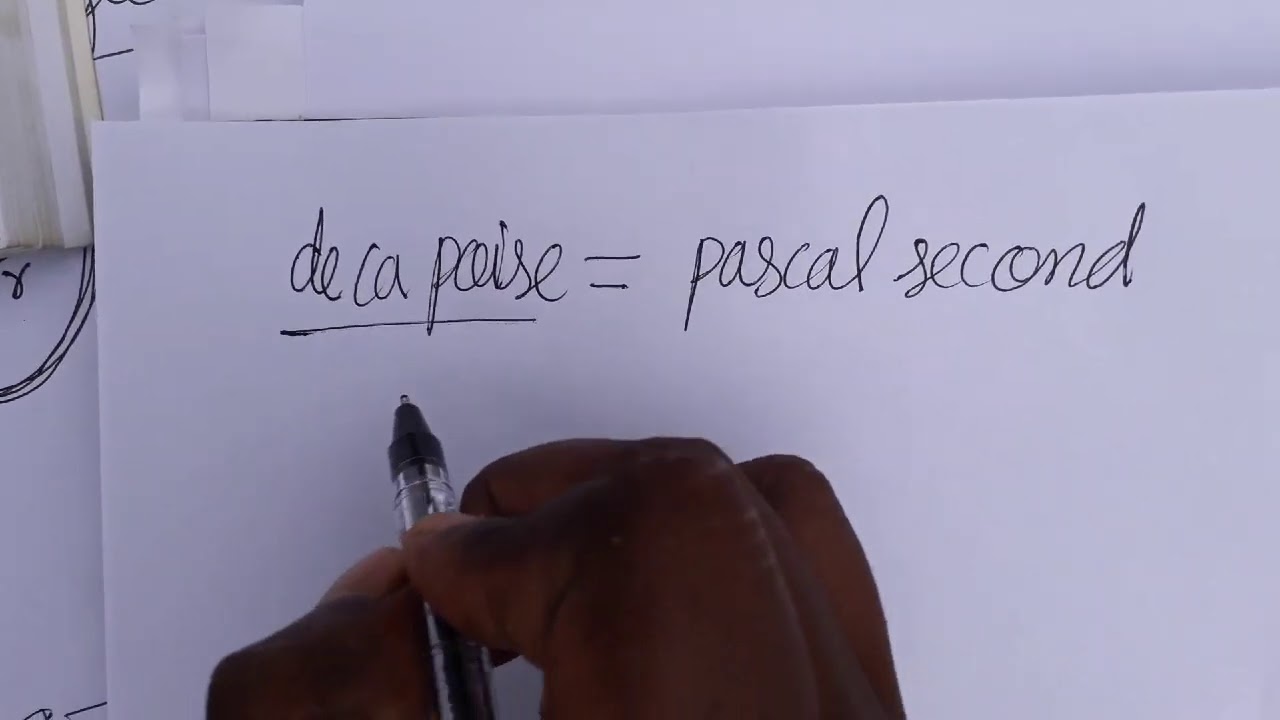 deca poise = pascal second
r